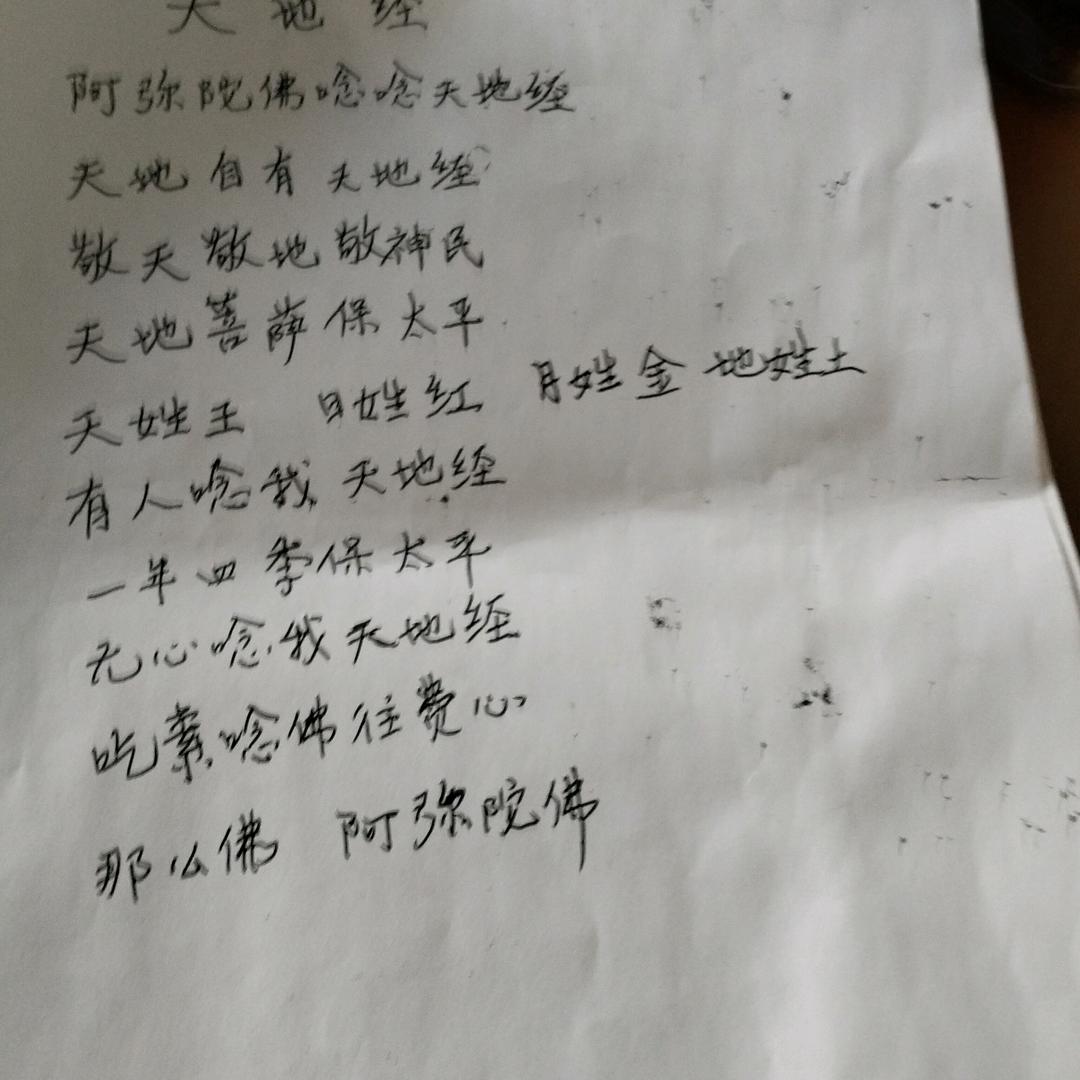 天地经
阿弥陀佛唸唸天地经
天地自有天地经
敬天敬地敬神民
天地菩萨保太平
天姓王 日姓红 月姓金 地姓土
有人唸我天地经
一年四季保太平
无心唸我天地经
吃素唸佛往费心
那么佛 阿弥陀佛